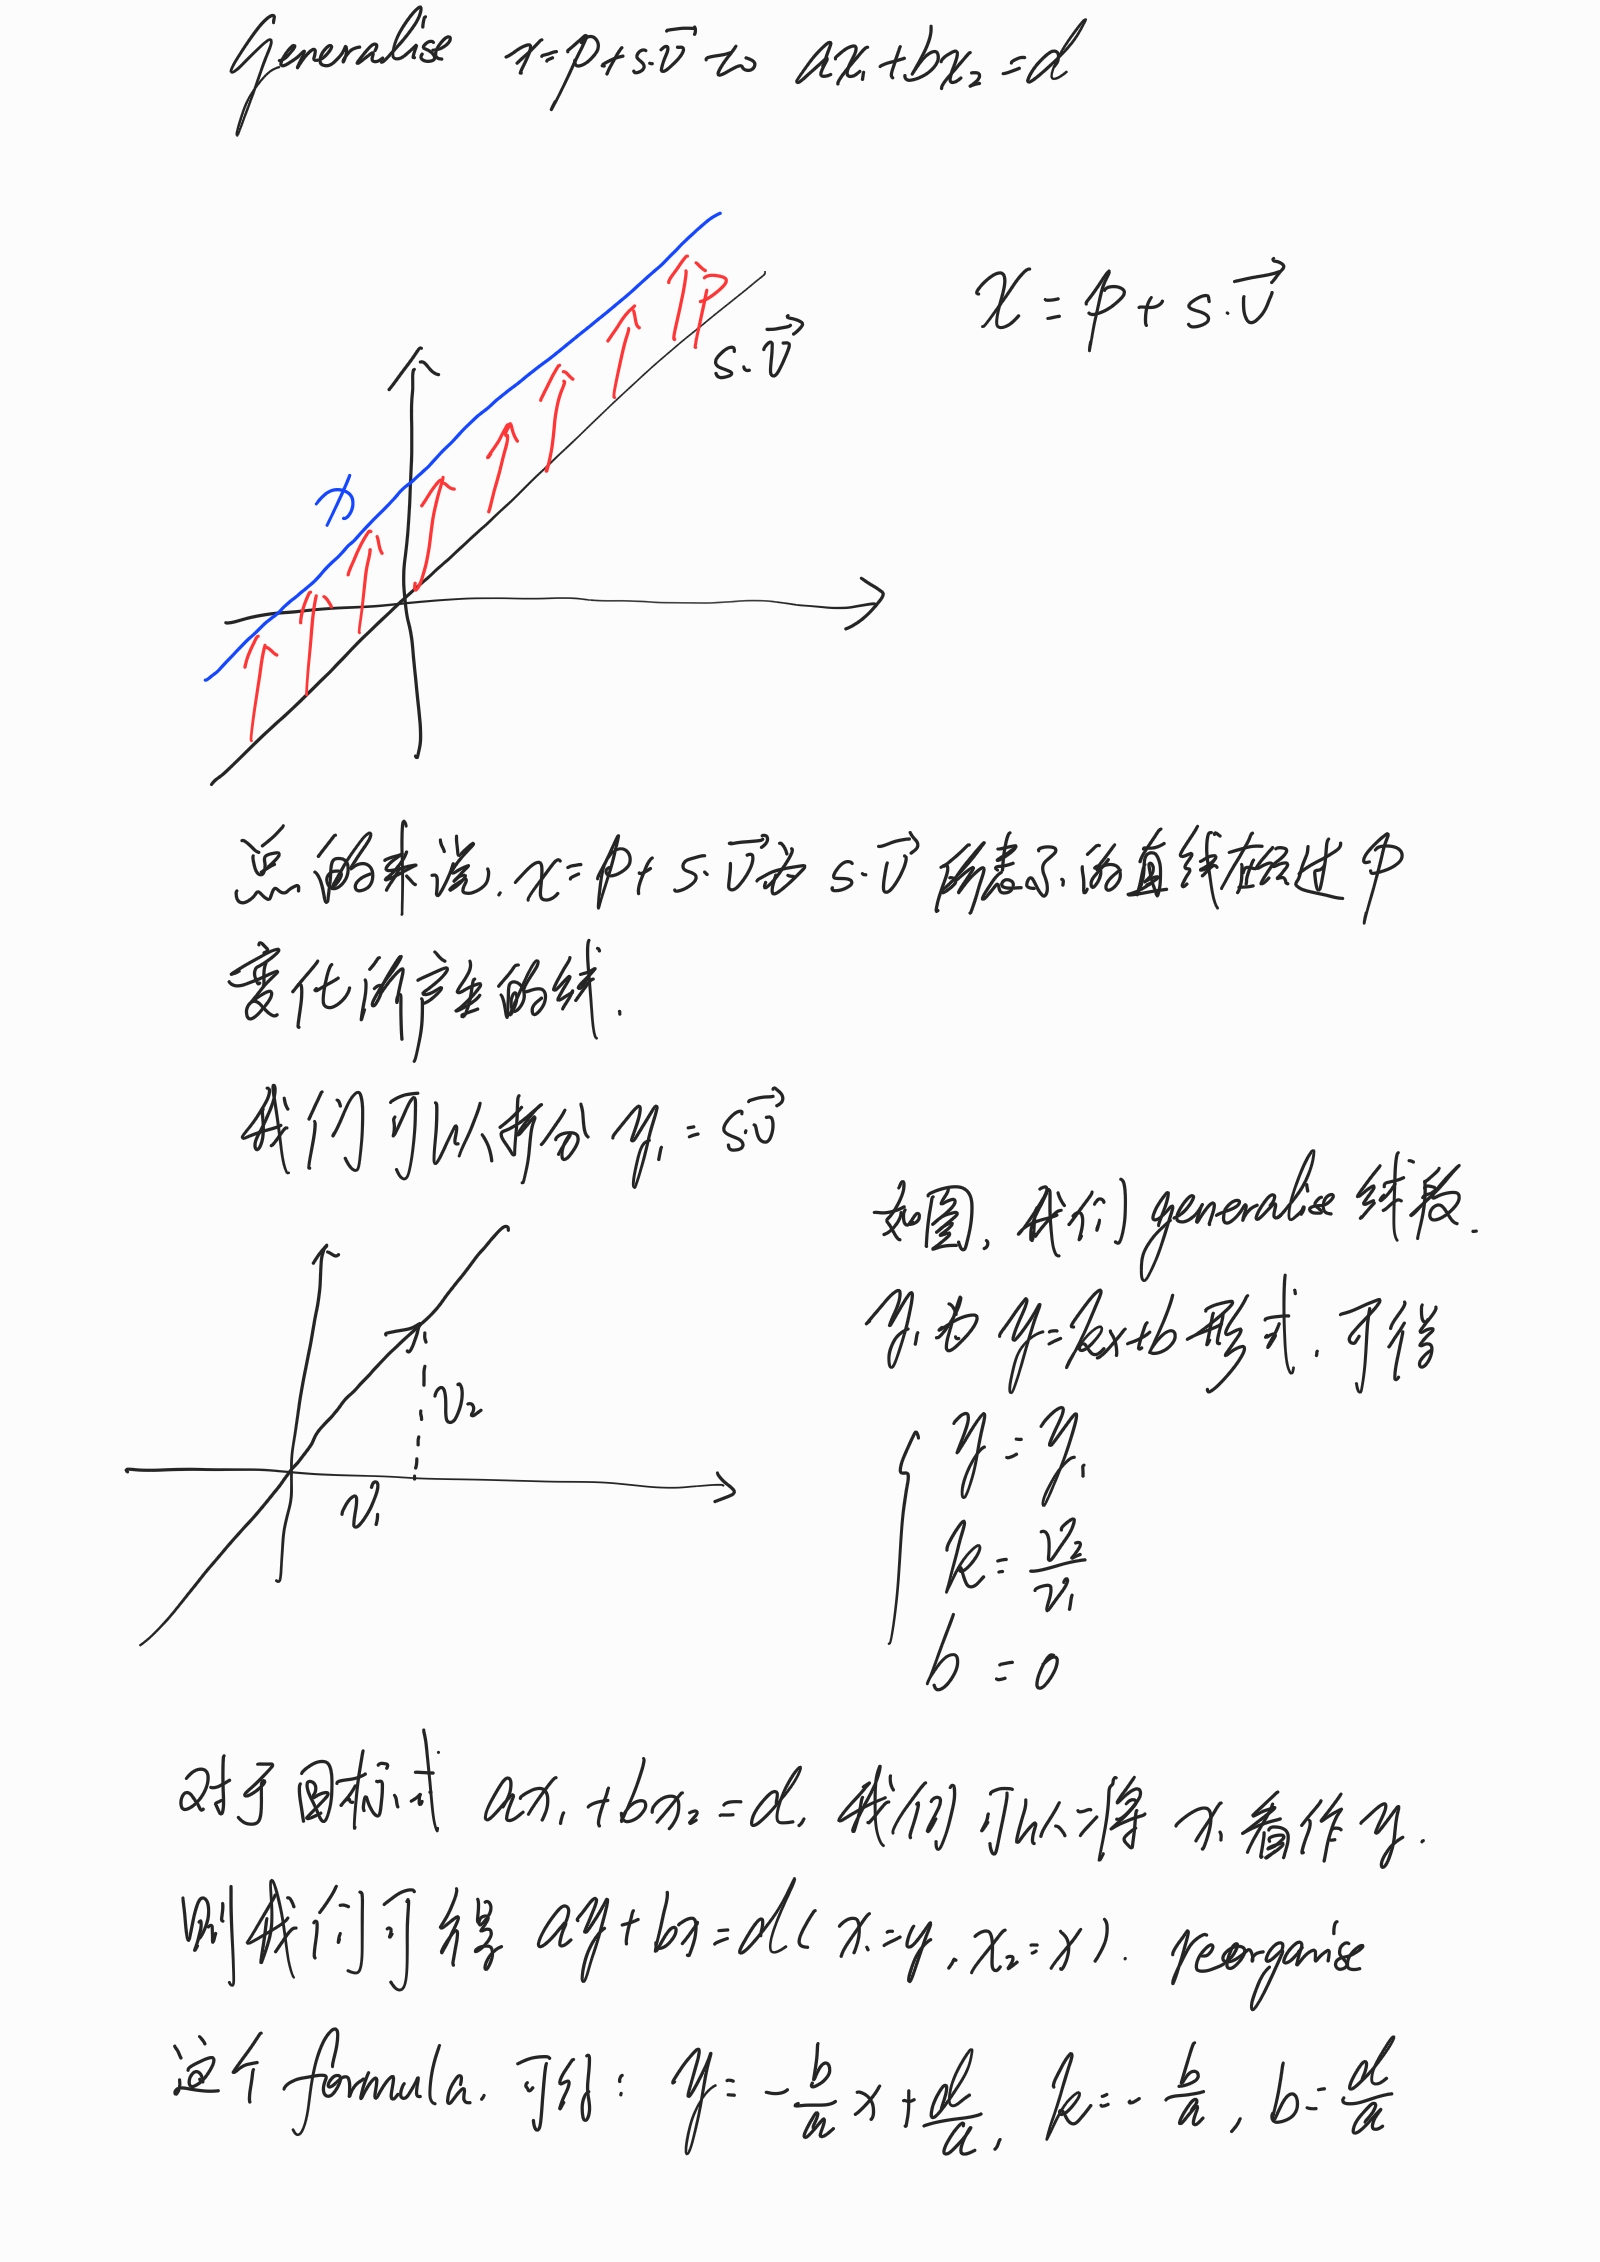 Generalise x=p+s·v⃗ to ax₁+bx₂=d
x=p+s·v⃗
p
s·v⃗
x
总的来说,x=p+s·v⃗为s·v⃗所表示的直线在经过p
变化所产生的线.
我们可以拆分y₁=s·v⃗
如图,我们generalise线段.
y₁为y=kx+b形式.可得
v₂
v₁
y=y₁
k=v₂/v₁
b=0
对于目标式 ax₁+bx₂=d,我们可以将x₁看作y.
则我们可得 ay+bx=d(x₁=y,x₂=x). reorganise
这个formula,可得: y=-b/a x+d/a, k=-b/a, b=d/a